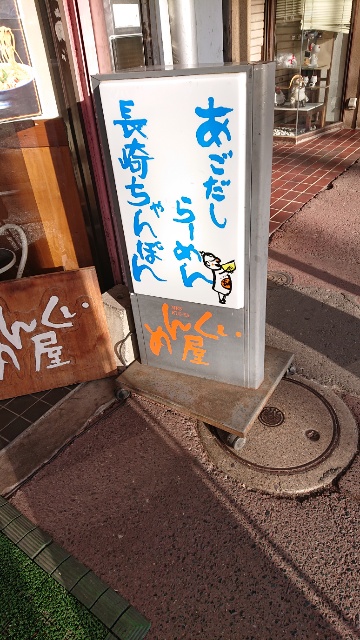 あごだし
らーめん
長崎ちゃんぽん
めんくい
屋
めんくい
屋